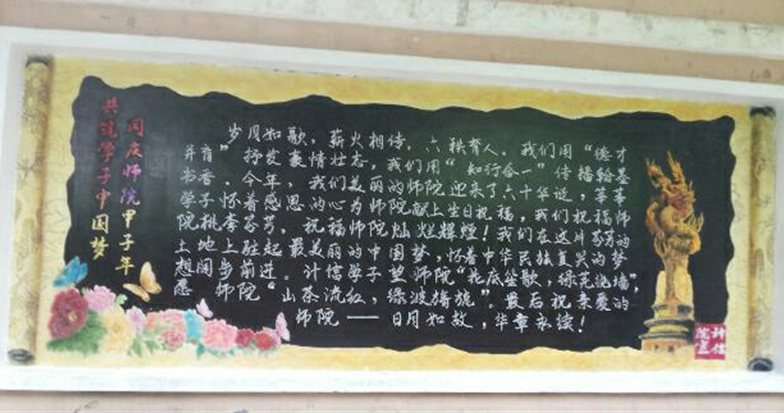 同庆师院甲子年
共筑学子中国梦
岁月如歌，薪火相传，六秩育人，我们用“德才
并育”抒发豪情壮志，我们用“知行合一”传播翰墨
书香。今年，我们美丽的师院迎来了六十华诞，莘莘
学子怀着感恩的心为师院献上生日祝福，我们祝福师
院桃李芬芳，祝福师院灿烂辉煌！我们在这片芬芳的
土地上驻起最美丽的中国梦，怀着中华民族复兴的梦
想阔步前进。计信学子望师院“花底笙歌，绿芜绕墙”，
愿师院“山茶流红，绿波旖旎”。最后祝亲爱的
师院——日月如故，华章永续！
计信
院宣